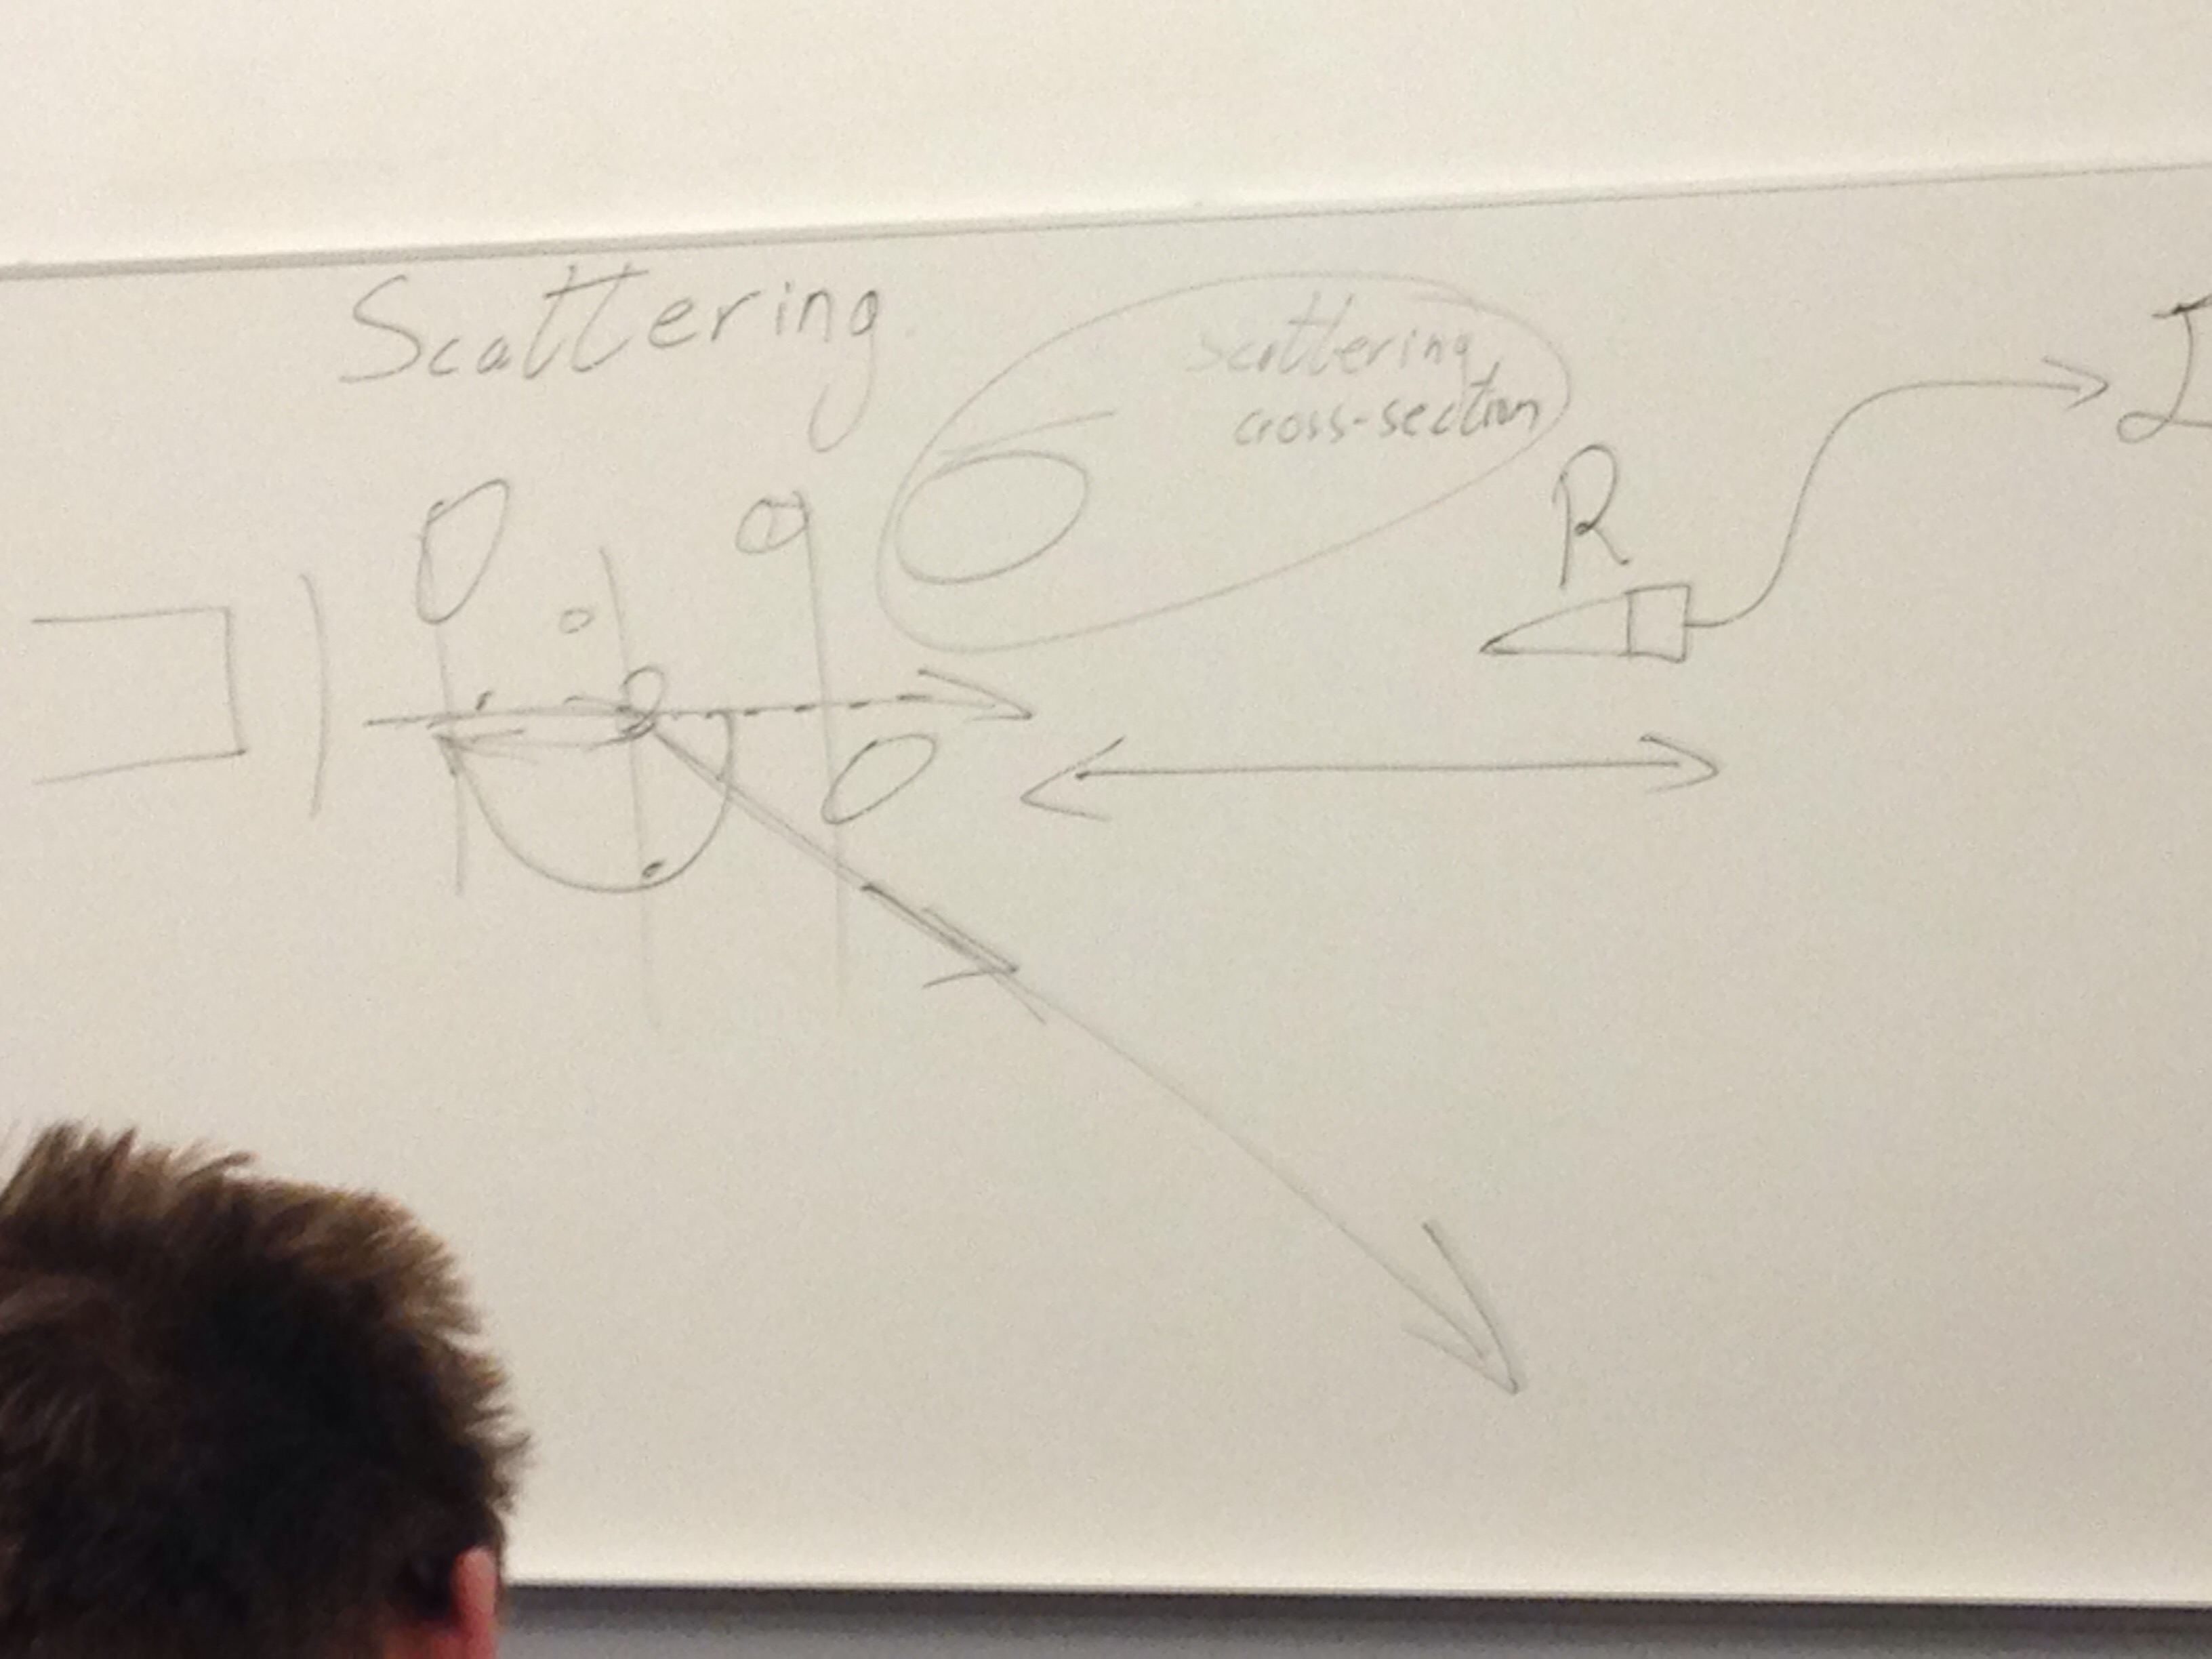 Scattering
scattering
cross-section
σ
R
I